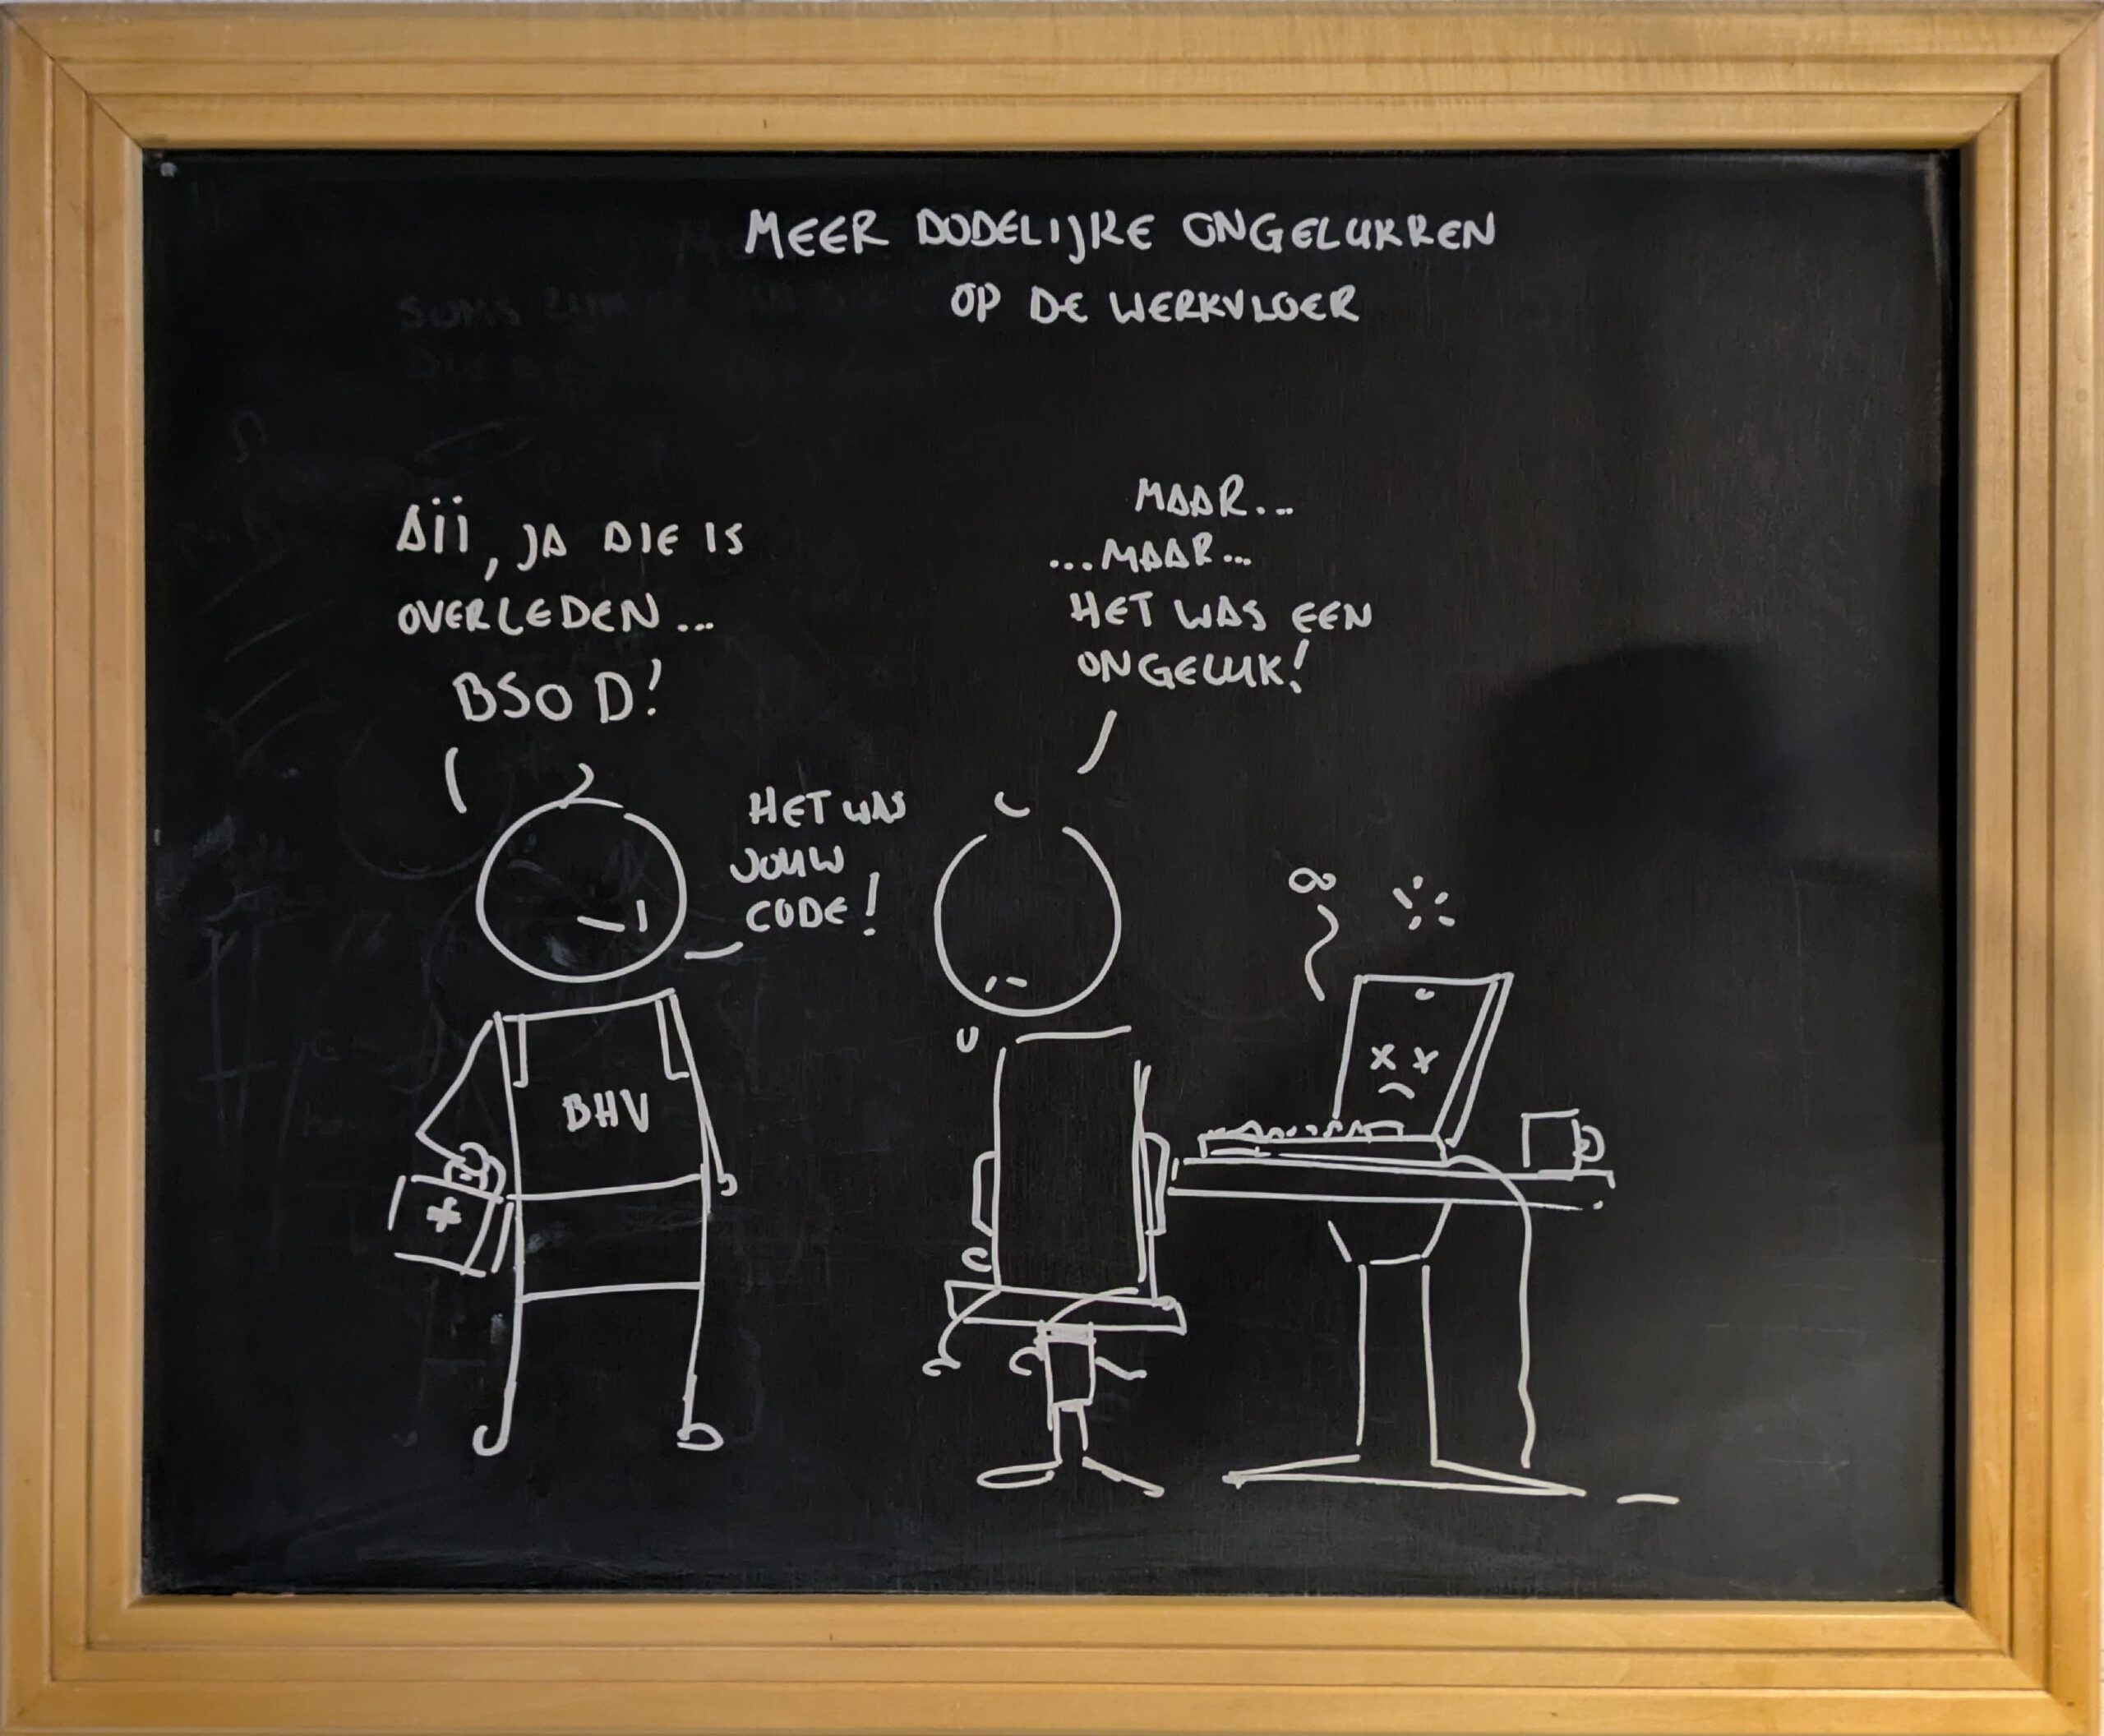 MEER DODELIJKE ONGELUKKEN
OP DE WERKVLOER
AÏÏ, JA DIE IS
OVERLEDEN...
BSOD!
MAAR...
...MAAR...
HET WAS EEN
ONGELUK!
HET WAS
JOUW
CODE!
BHV